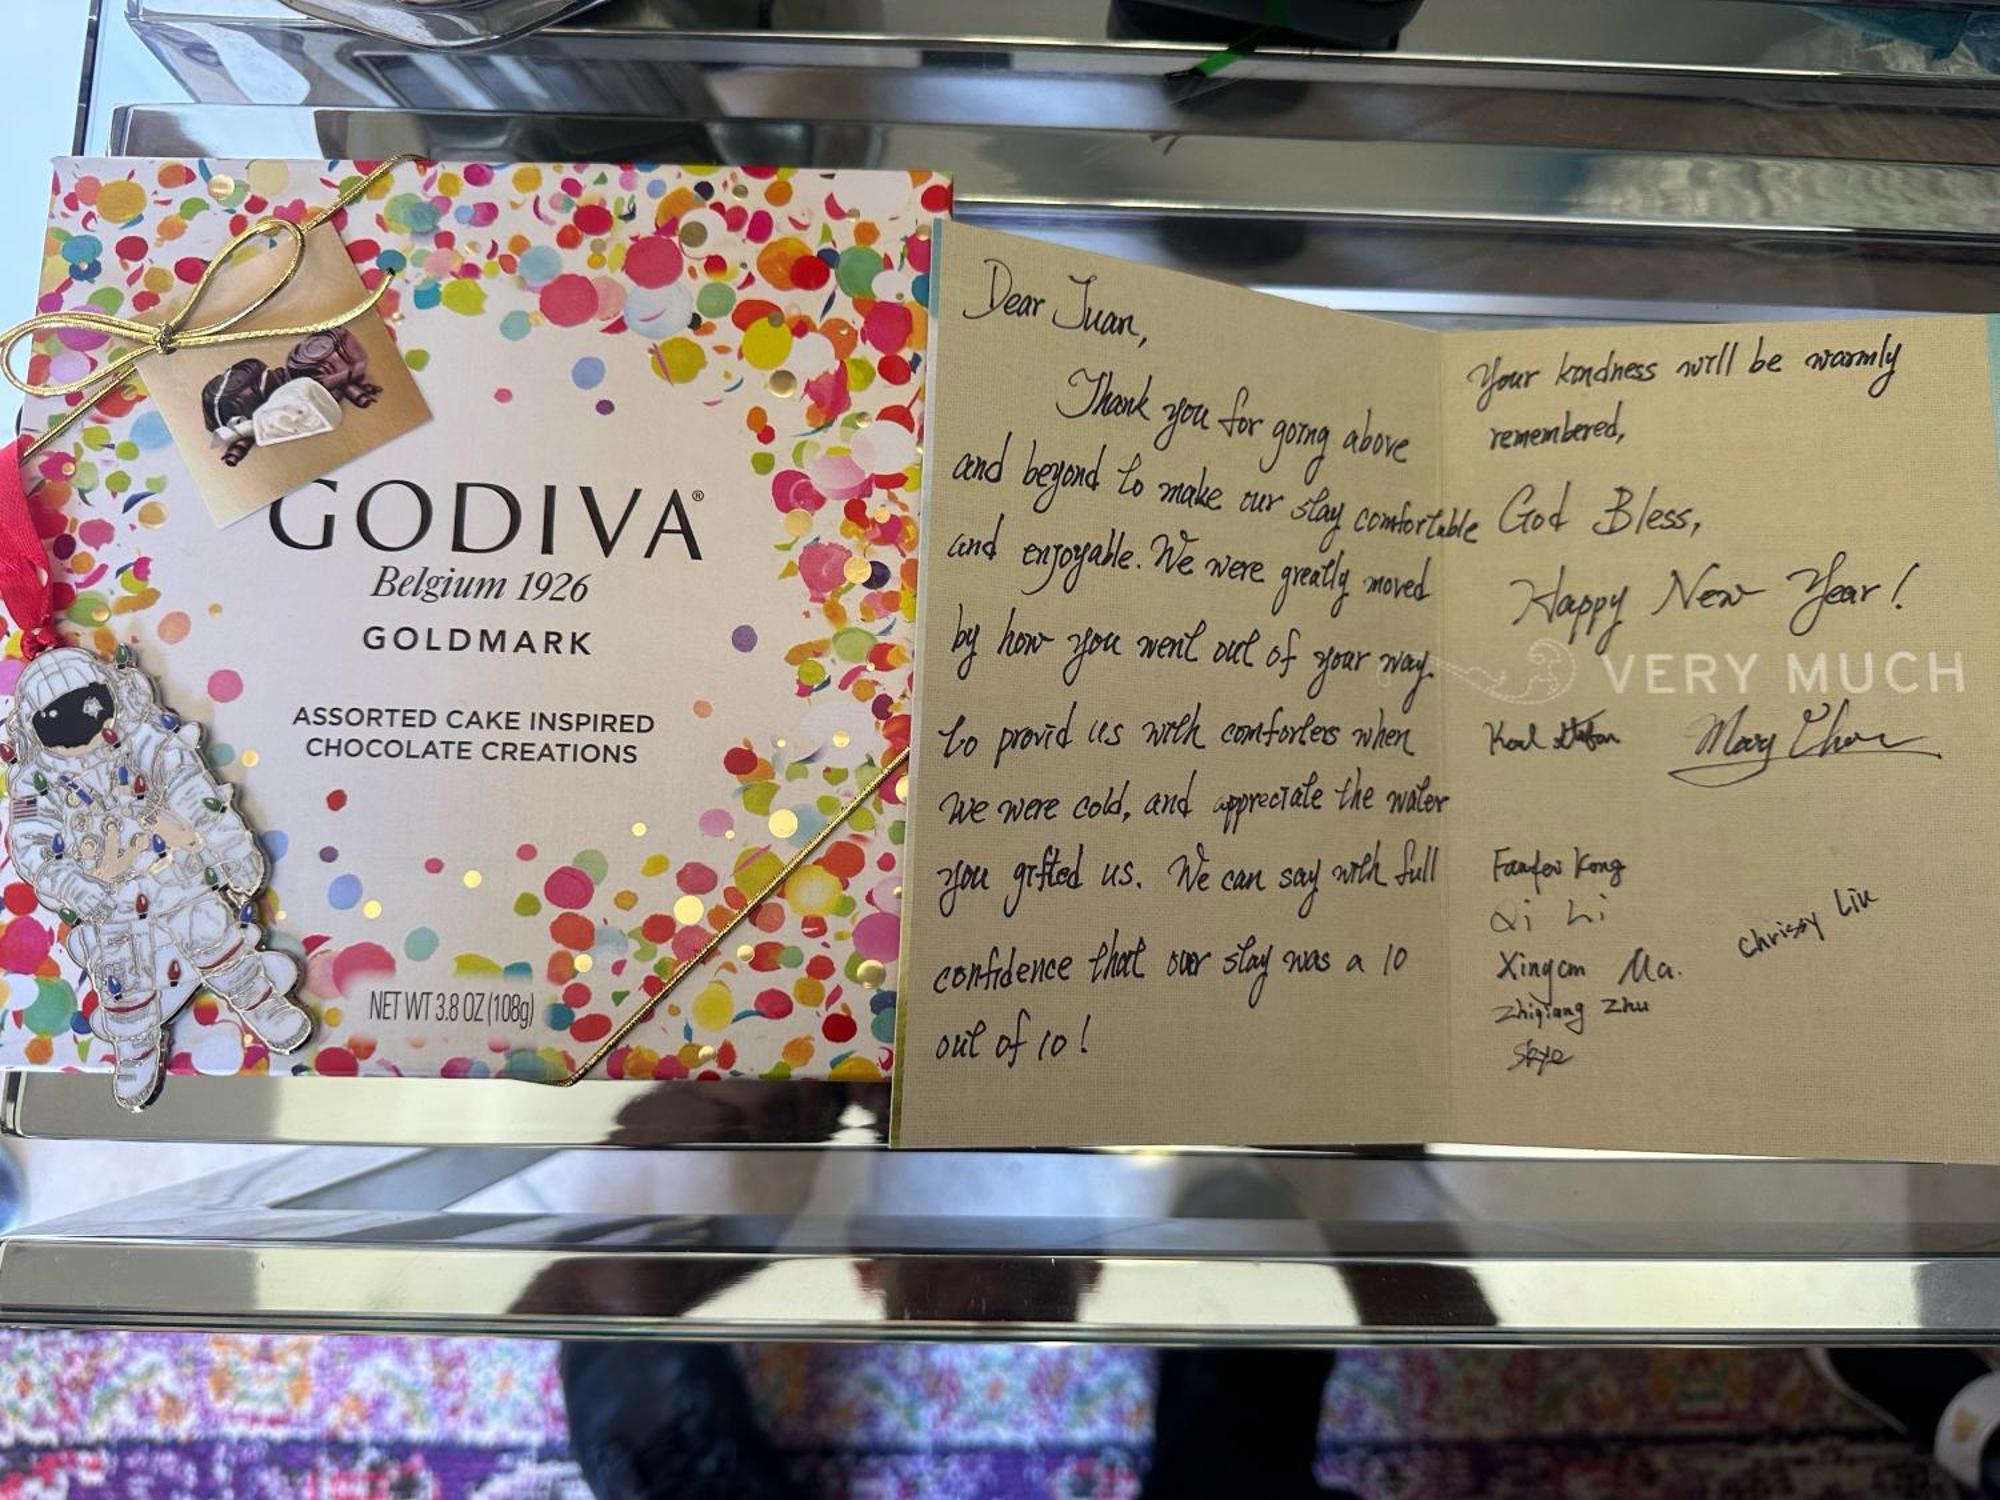 GODIVA®
Belgium 1926
GOLDMARK
ASSORTED CAKE INSPIRED
CHOCOLATE CREATIONS
NET WT 3.8 OZ (108g)
Dear Juan,
Thank you for going above
and beyond to make our stay comfortable
and enjoyable. We were greatly moved
by how you went out of your way
to provid us with comforters when
we were cold, and appreciate the water
you gifted us. We can say with full
confidence that our stay was a 10
out of 10!
Your kindness will be warmly
remembered,
God Bless,
Happy New Year!
VERY MUCH
Mary
Kong
Qi Li
Chrissy Liu
Ma.
Zhiqiang Zhu
Skye